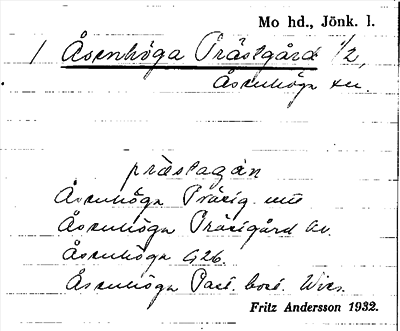 Mo hd., Jönk. l.
1 Åsenhöga Prästgård 1/2,
Åsenhöga sn.
prästagán
Åsenhöga Prästg.
Åsenhöga Prästgård
Åsenhöga G26.
Åsenhöga Past. bost.
Fritz Andersson 1932.